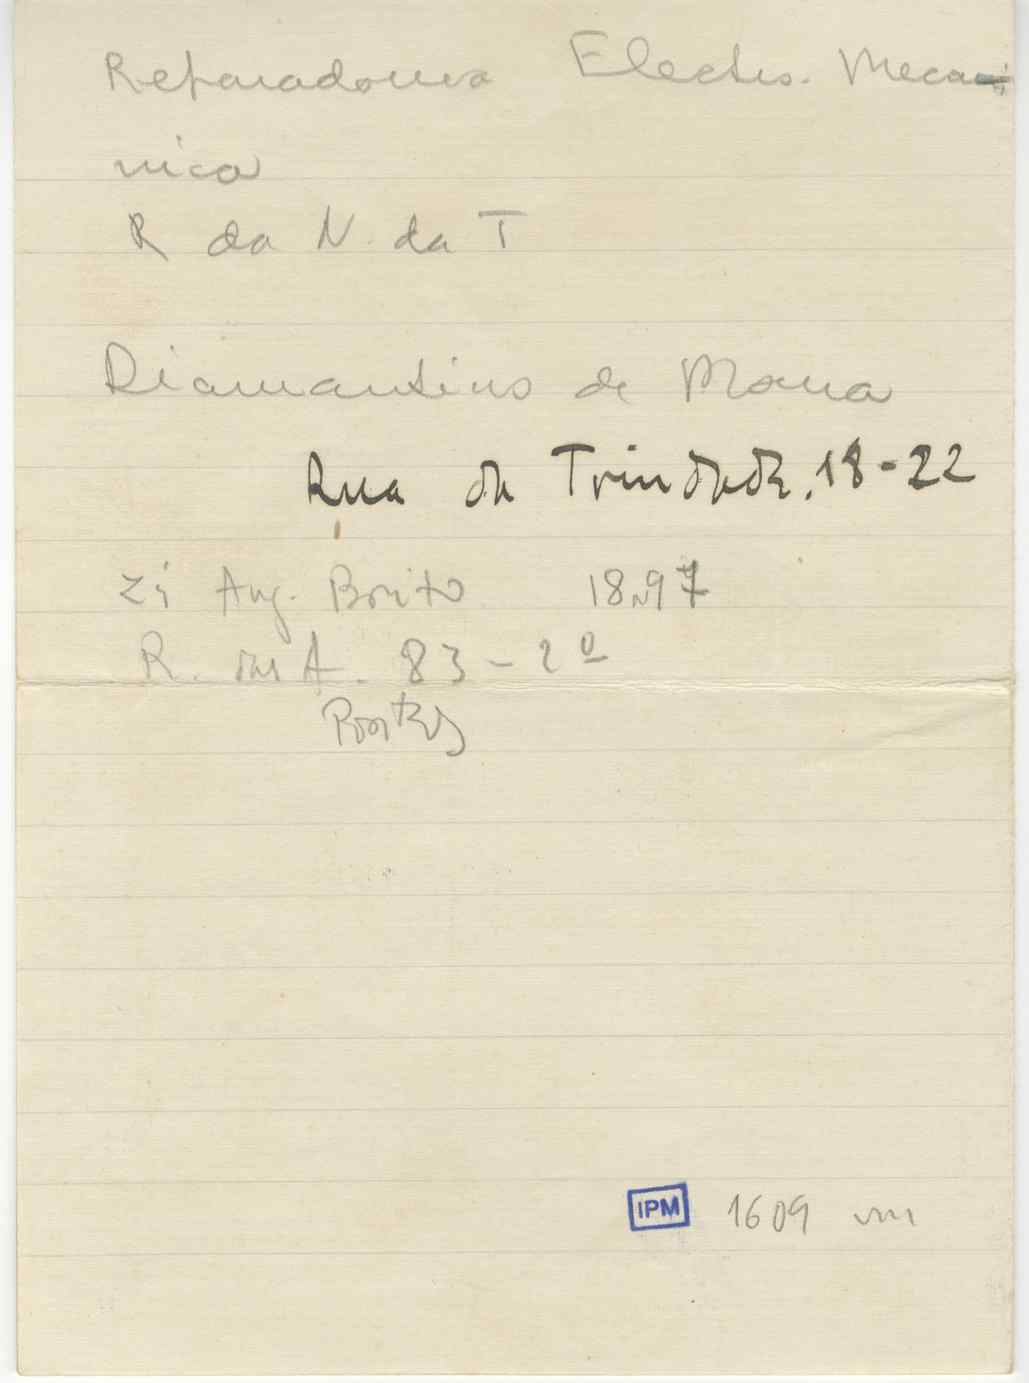 Reparadora Electro. Meca-
nica
R da N. da T
Diamantino de Moura
Rua da Trindade. 18-22
Zé Aug. Brito 18.97
R. das A. 83-2º
IPM 1609